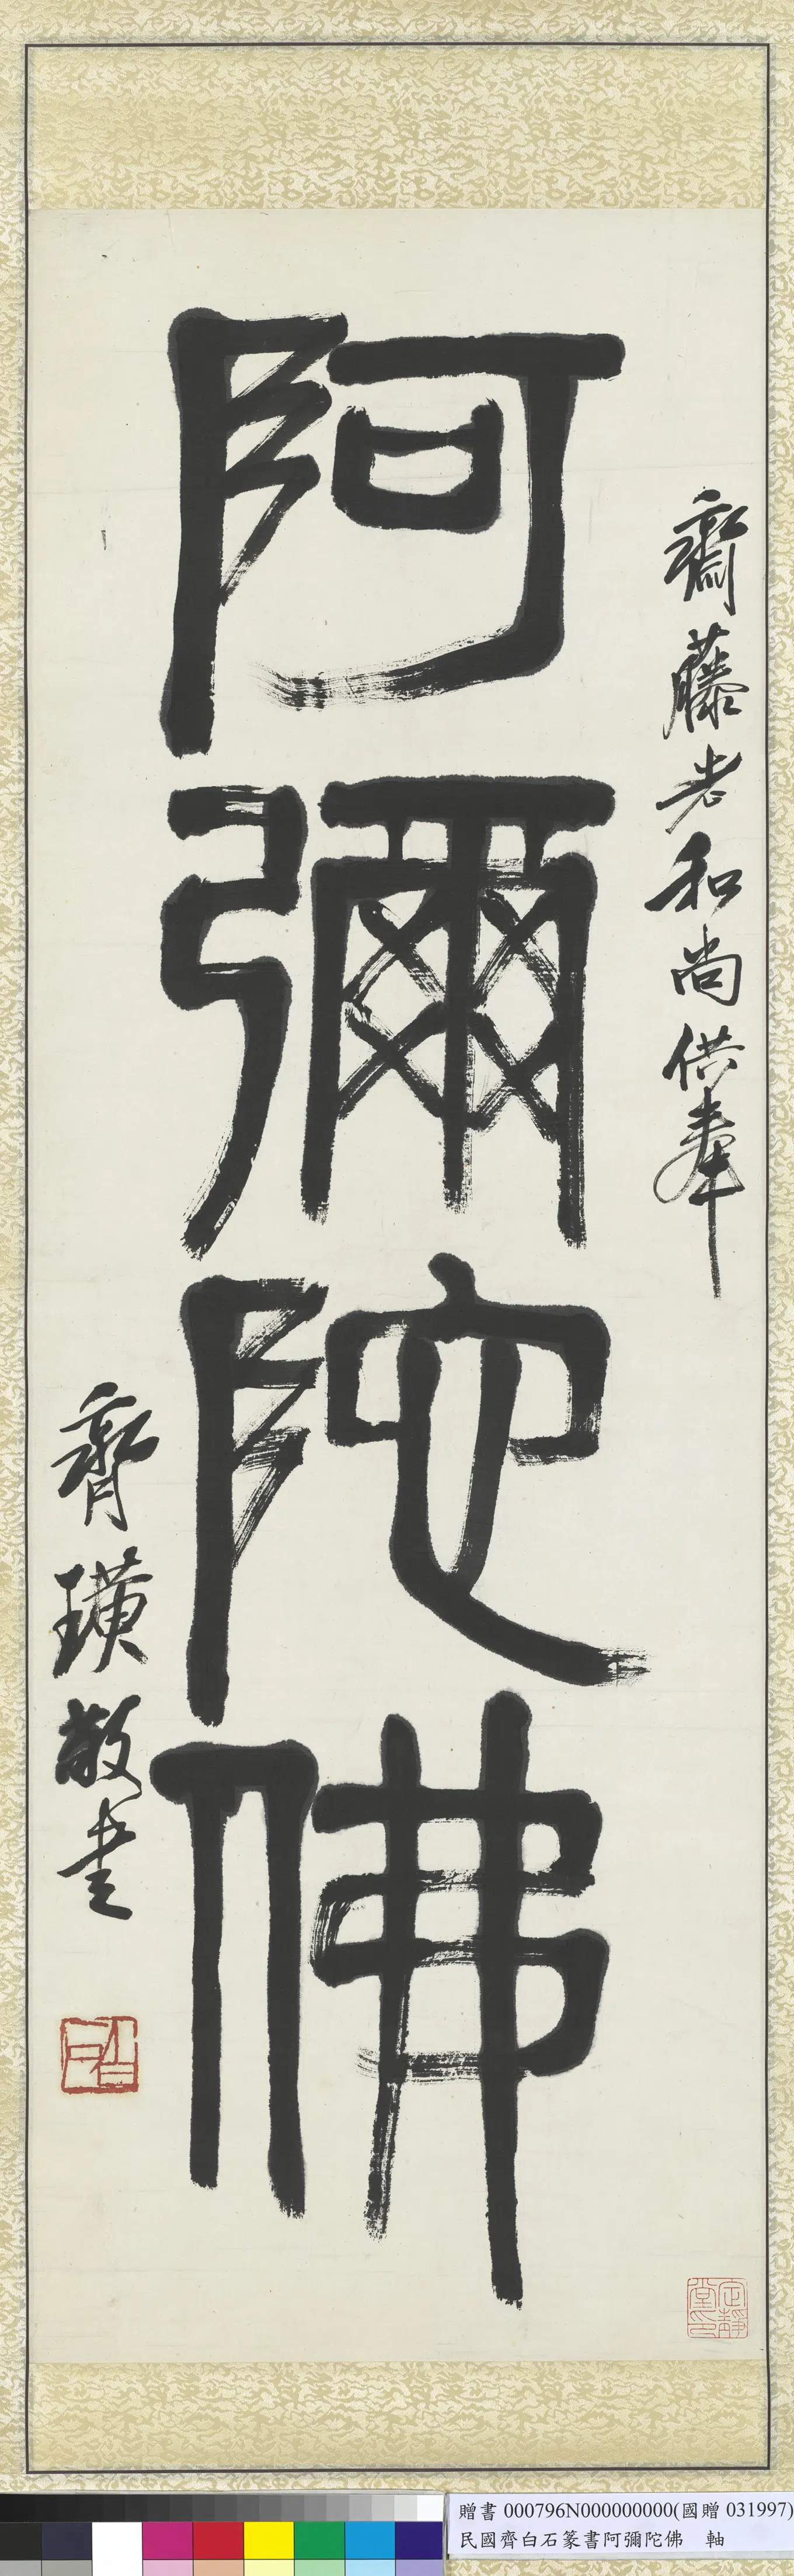 齋藤老和尚供奉
阿彌陀佛
齊璜敬書
白石
定靜堂印
贈書 000796N000000000(國贈 031997)
民國齊白石篆書阿彌陀佛 軸